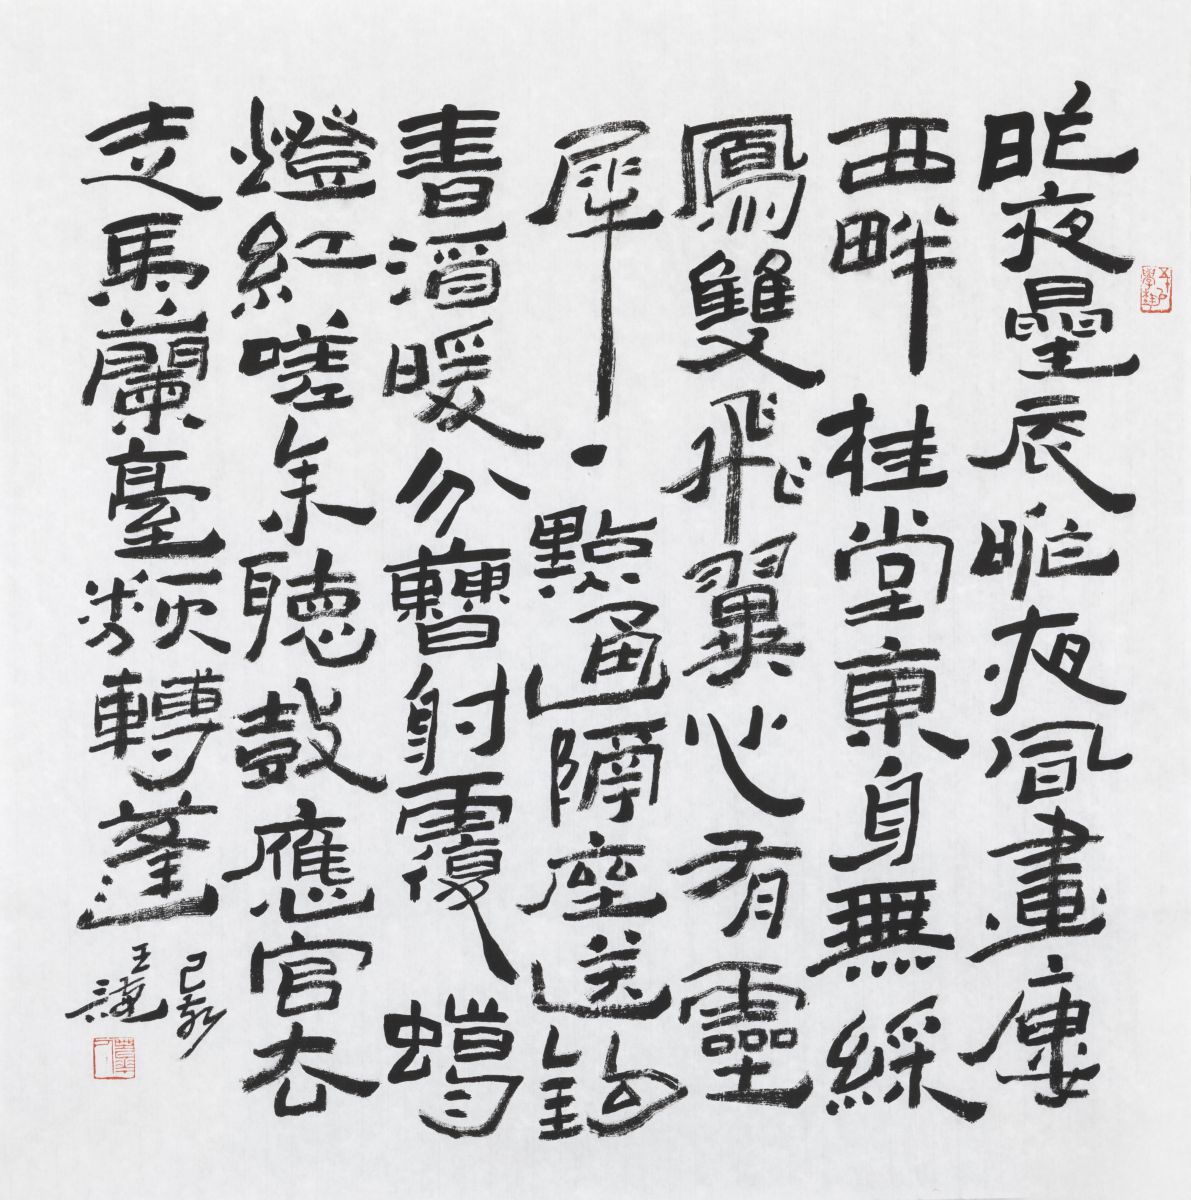 昨夜曐辰昨夜風畫廔
西畔桂堂東身無綵
鳳雙飛翼心有靈
犀一點通隔座送鉤
春酒暖分曹射覆蠟
燈紅嗟余聽鼓應官去
走馬蘭臺類轉蓬
己亥
王